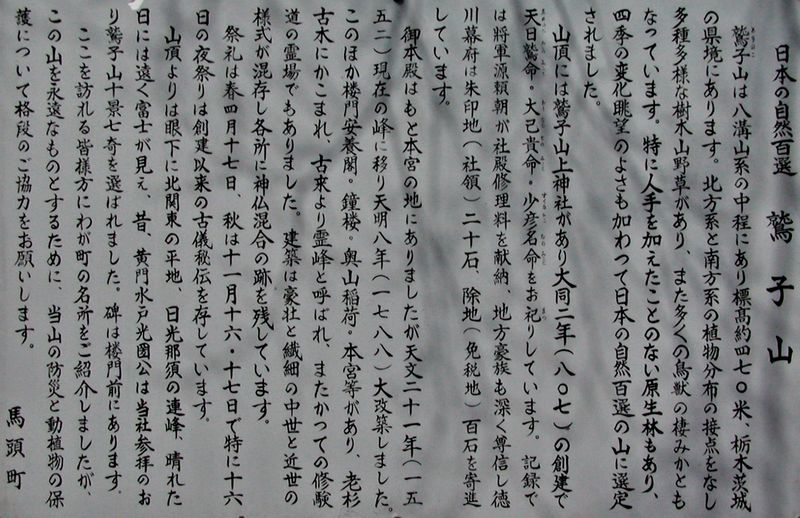 日本の自然百選　鷲子山
鷲子山は八溝山系の中程にあり標高約四七〇米、栃木茨城
の県境にあります。北方系と南方系の植物分布の接点をなし
多種多様な樹木山野草があり、また多くの鳥獣の棲みかとも
なっています。特に人手を加えたことのない原生林もあり、
四季の変化眺望のよさも加わって日本の自然百選の山に選定
されました。
山頂には鷲子山上神社があり大同二年（八〇七）の創建で
天日鷲命・大己貴命・少彦名命をお祀りしています。記録で
は将軍源頼朝が社殿修理料を献納、地方豪族も深く尊信し徳
川幕府は朱印地（社領）二十石、除地（免税地）百石を寄進
しています。
御本殿はもと本宮の地にありましたが天文二十一年（一五
五二）現在の峰に移り天明八年（一七八八）大改築しました。
このほか楼門安養閣。鐘楼。奥山稲荷・本宮等があり、老杉
古木にかこまれ、古来より霊峰と呼ばれ、またかつての修験
道の霊場でもありました。建築は豪壮と繊細の中世と近世の
様式が混存し各所に神仏混合の跡を残しています。
祭礼は春四月十七日、秋は十一月十六・十七日で特に十六
日の夜祭りは創建以来の古儀秘伝を存しています。
山頂よりは眼下に北関東の平地、日光那須の連峰、晴れた
日には遠く富士が見え、昔、黄門水戸光圀公は当社参拝のお
り鷲子山十景七奇を選ばれました。碑は楼門前にあります。
ここを訪れる皆様方にわが町の名所をご紹介しましたが、
この山を永遠なものとするために、当山の防災と動植物の保
護について格段のご協力をお願いします。
馬頭町